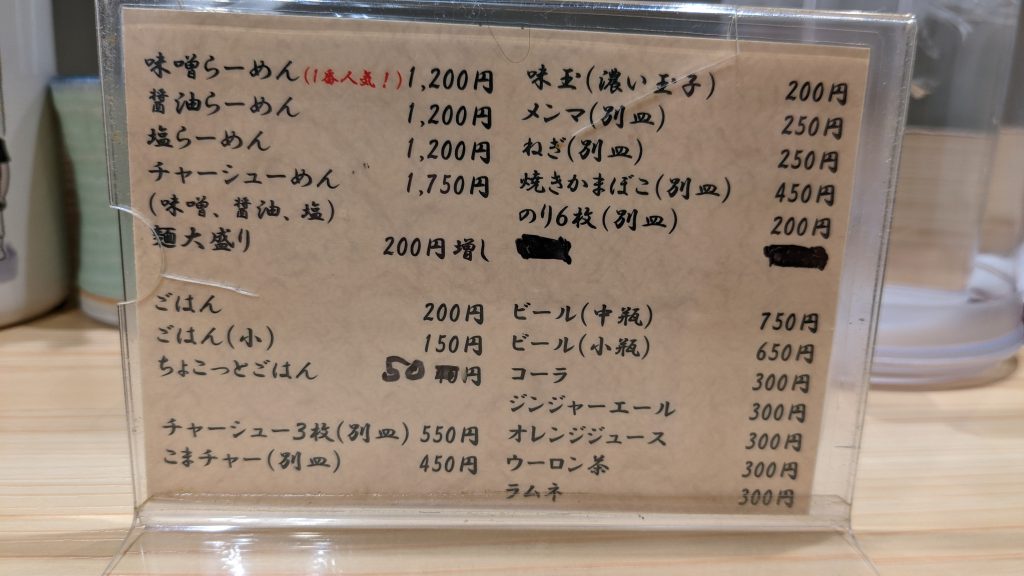 味噌らーめん(1番人気!) 1,200円
醤油らーめん 1,200円
塩らーめん 1,200円
チャーシューめん 1,750円
(味噌、醤油、塩)
麺大盛り 200円増し
ごはん 200円
ごはん(小) 150円
ちょこっとごはん 50円
チャーシュー3枚(別皿) 550円
こまチャー(別皿) 450円
味玉(濃い玉子) 200円
メンマ(別皿) 250円
ねぎ(別皿) 250円
焼きかまぼこ(別皿) 450円
のり6枚(別皿) 200円
ビール(中瓶) 750円
ビール(小瓶) 650円
コーラ 300円
ジンジャーエール 300円
オレンジジュース 300円
ウーロン茶 300円
ラムネ 300円